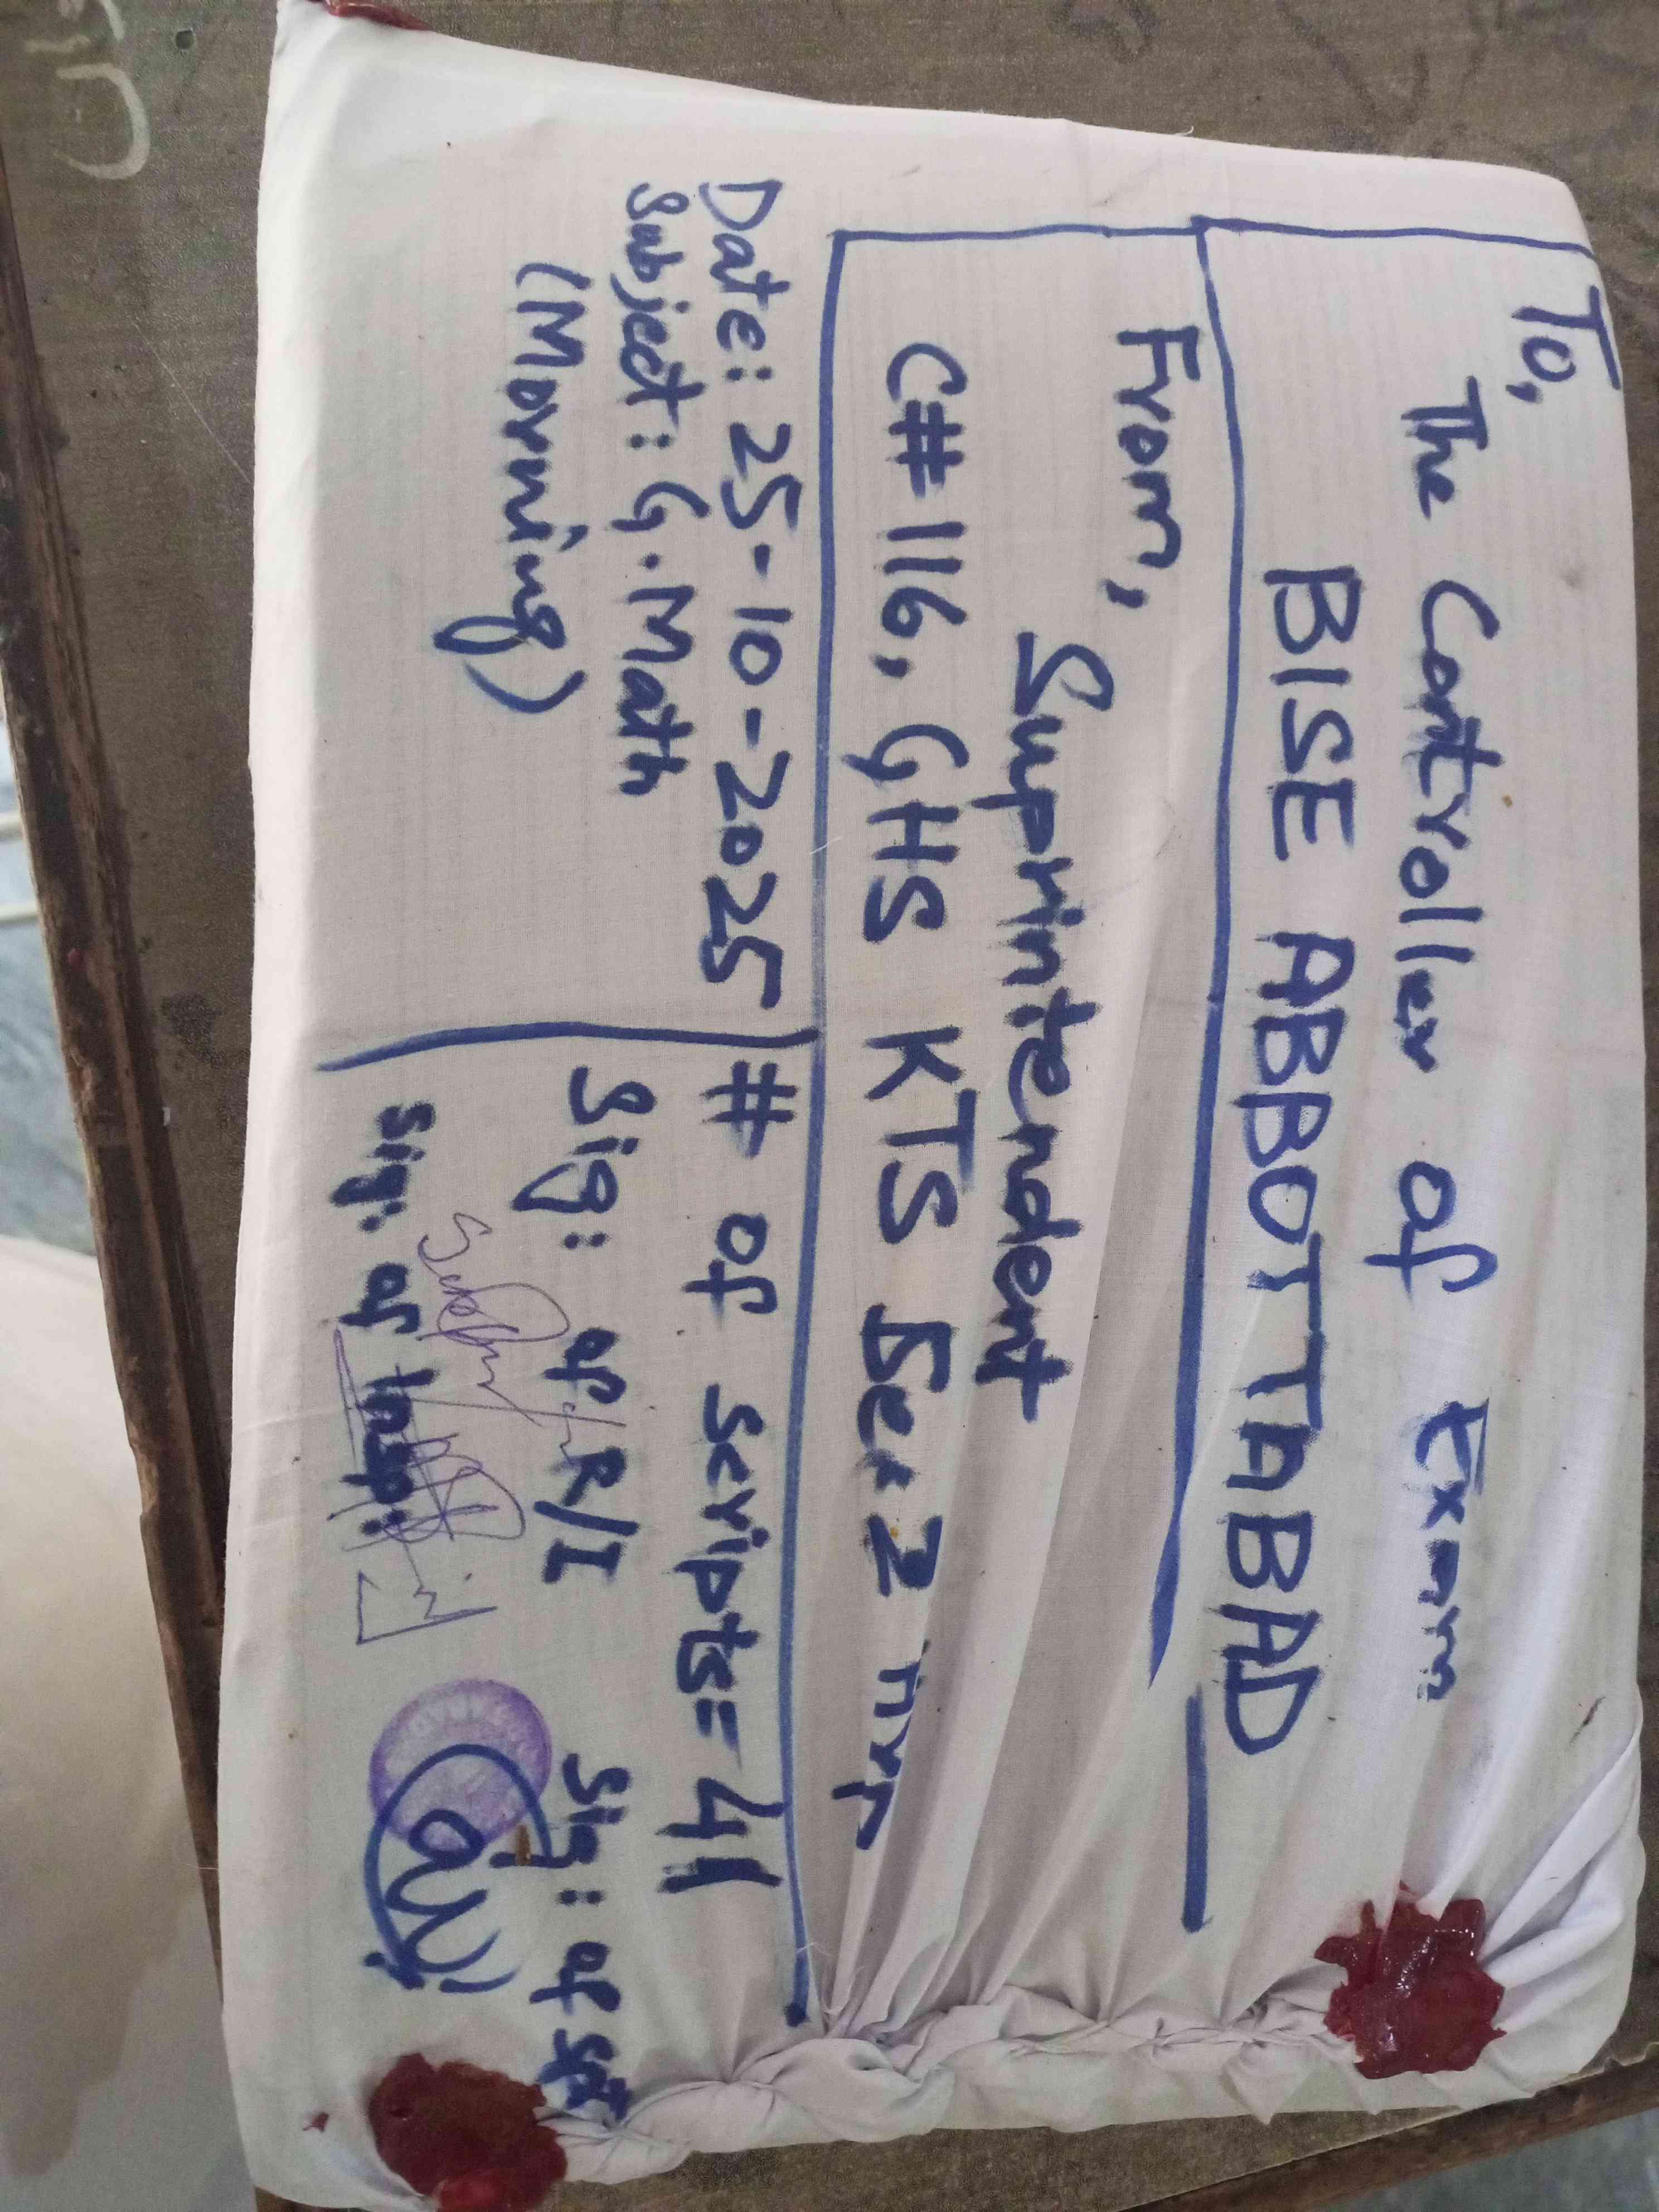 To,
The Controller of Exam
BISE ABBOTTABAD
From,
Suprintendent
C# 116, GHS KTS Sec 2 Hrp
Date: 25-10-2025
Subject: G.Math
(Morning)
# of scripts= 41
Sig: of R/I
Sig: of Insp:
Sig: of